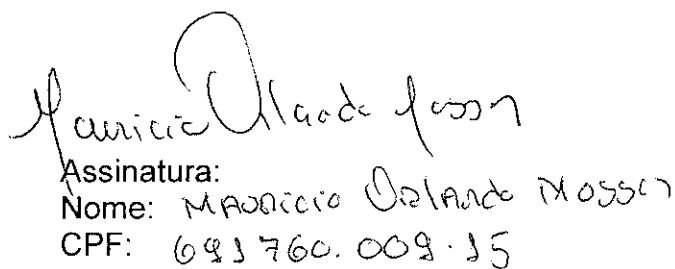 Mauricio Orlando Mosson
Assinatura:
Nome: MAURICIO ORLANDO MOSSON
CPF: 691760.009.15